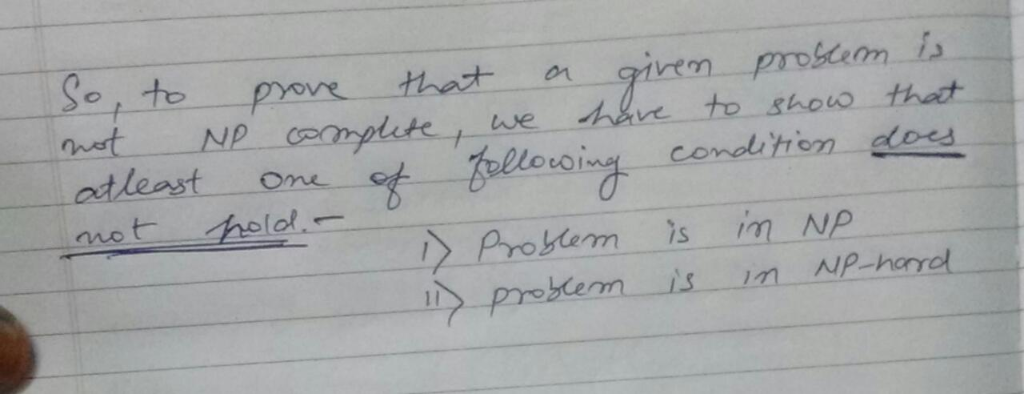 So, to prove that a given problem is
not NP complete, we have to show that
atleast one of following condition does
not hold.-
i) Problem is in NP
ii) problem is in NP-hard